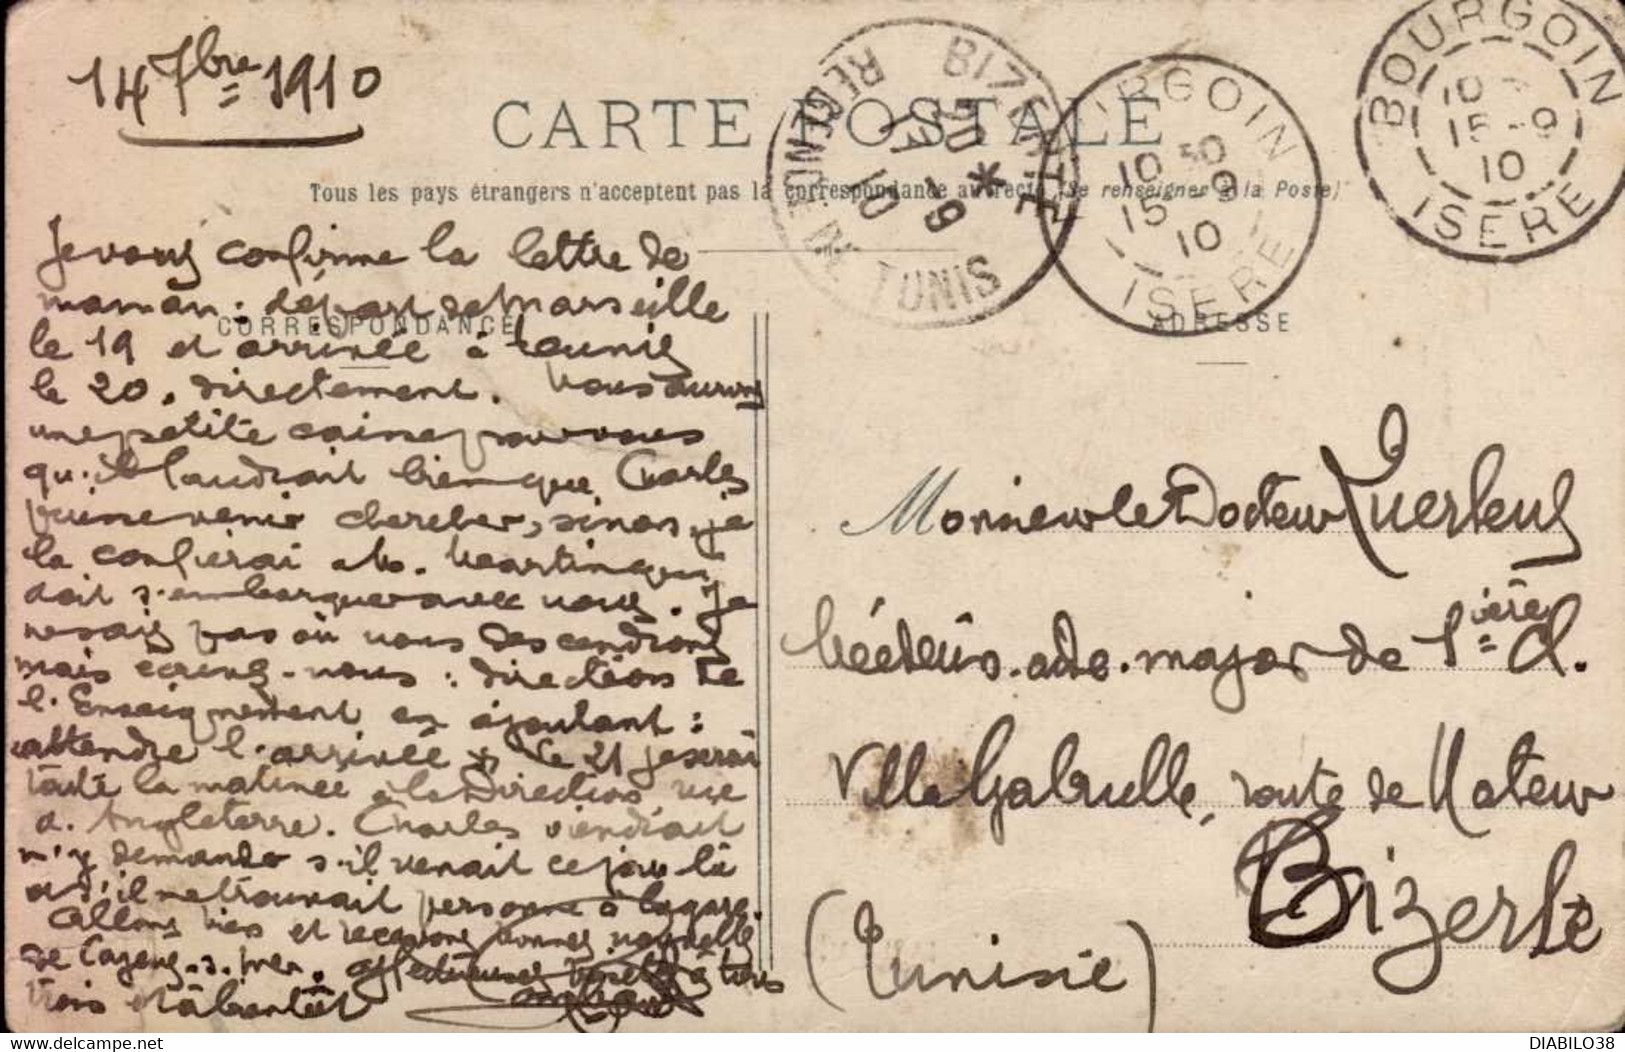 14 7bre 1910
CARTE POSTALE
Tous les pays étrangers n'acceptent pas la correspondance au recto (Se renseigner à la Poste)
BIZERTE
20
17 -9
10
REGENCE DE TUNIS
BOURGOIN
10 30
15 -9
10
ISERE
BOURGOIN
10
15 -9
10
ISERE
CORRESPONDANCE
ADRESSE
Je vous confirme la lettre de
maman : départ de Marseille
le 19 et arrivée à Tunis
le 20, directement. Nous aurons
une petite caisse pour vous
qu'il faudrait bien que Charles
puisse venir chercher, sinon je
la confierai à M. Martin qui
doit s'embarquer avec nous. Je
ne sais pas où nous descendrons
mais écrivez-nous : direction de
l'Enseignement en ajoutant :
attendre l'arrivée. Le 21 je serai
toute la matinée à la Direction, rue
d'Angleterre. Charles viendrait
m'y demander s'il venait ce jour là
et s'il ne trouvait personne à la gare.
Allons bien et recevons bonnes nouvelles
de Cayeux-s-mer. Affectueux baisers à tous
trois et à bientôt
Monsieur le Docteur Querleux
Médecin-aide-major de 1ière Cl.
Villa Gabrielle, route de Mateur
Bizerte
(Tunisie)
DIABILO38